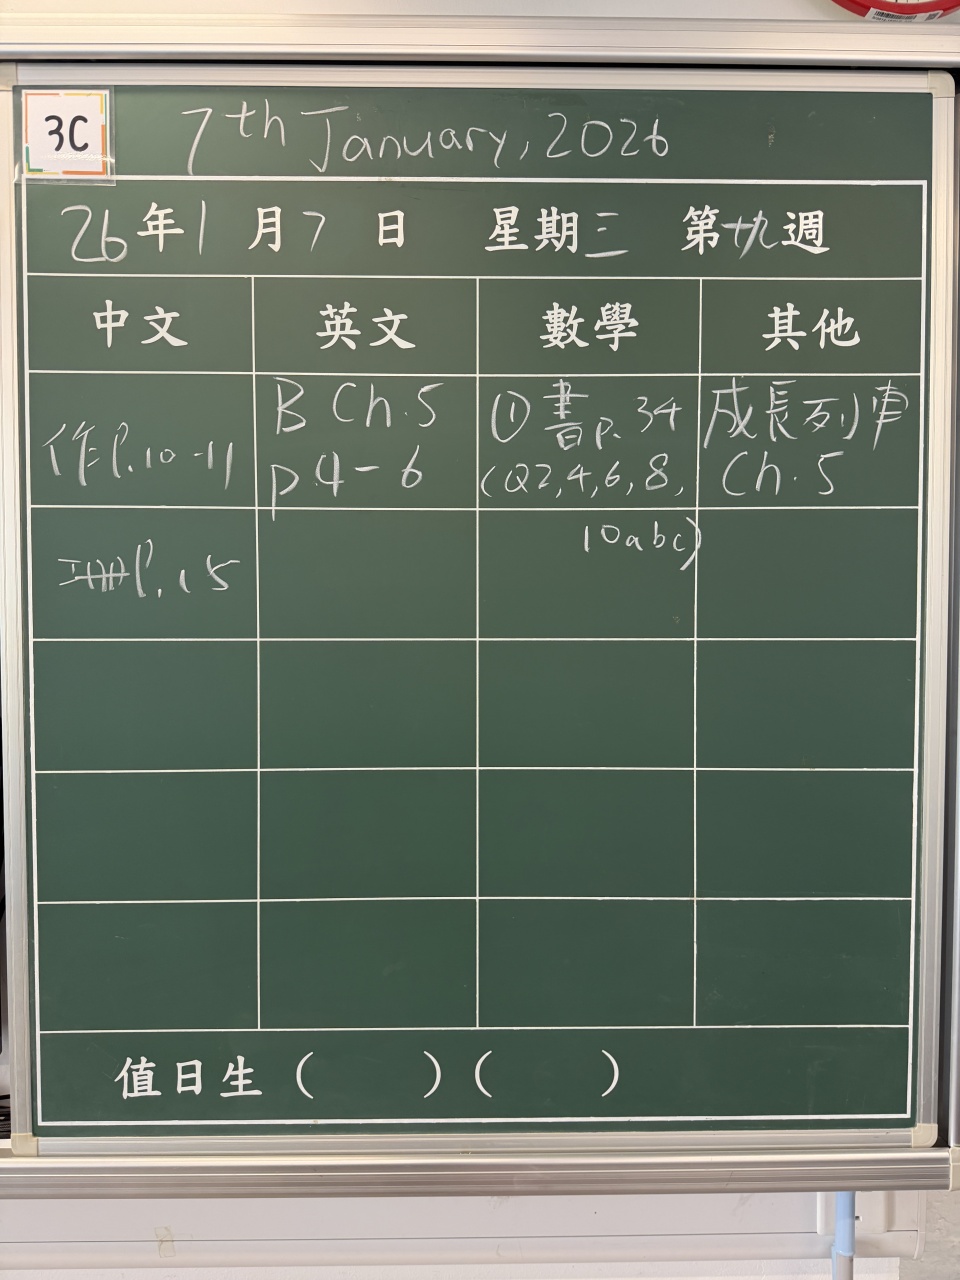 3C
7th January, 2026
26年1月7日 星期三 第十九週
中文 英文 數學 其他
作P.10-11
B Ch.5
p4-6
① 書p.34
(Q2,4,6,8,
10abc)
成長列車
Ch.5
P.15
值日生( )( )